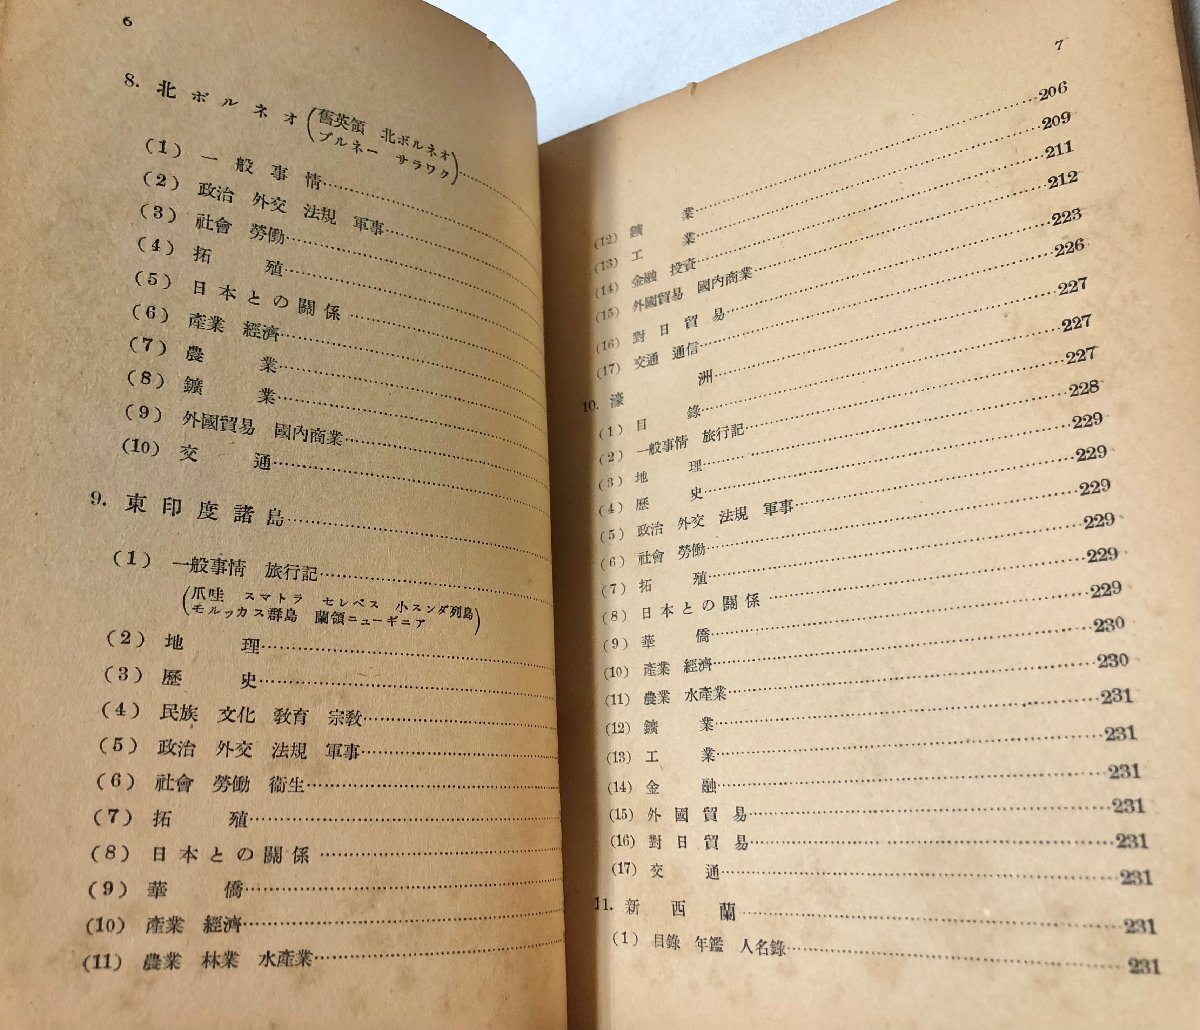 6
8. 北ボルネオ(舊英領 北ボルネオ
ブルネー サラワク)……
(1) 一般事情……
(2) 政治 外交 法規 軍事……
(3) 社會 勞働……
(4) 拓殖……
(5) 日本との關係……
(6) 產業 經濟……
(7) 農業……
(8) 鑛業……
(9) 外國貿易 國內商業……
(10) 交通……
9. 東印度諸島……
(1) 一般事情 旅行記……
(爪哇 スマトラ セレベス 小スンダ列島
モルッカス群島 蘭領ニューギニア)
(2) 地理……
(3) 歷史……
(4) 民族 文化 敎育 宗敎……
(5) 政治 外交 法規 軍事……
(6) 社會 勞働 衞生……
(7) 拓殖……
(8) 日本との關係……
(9) 華僑……
(10) 產業 經濟……
(11) 農業 林業 水產業……
7
(12) 鑛業……206
(13) 工業……209
(14) 金融 投資……211
(15) 外國貿易 國內商業……212
(16) 對日貿易……223
(17) 交通 通信……226
10. 濠洲……227
(1) 目錄……227
(2) 一般事情 旅行記……227
(3) 地理……228
(4) 歷史……229
(5) 政治 外交 法規 軍事……229
(6) 社會 勞働……229
(7) 拓殖……229
(8) 日本との關係……229
(9) 華僑……229
(10) 產業 經濟……230
(11) 農業 水產業……230
(12) 鑛業……231
(13) 工業……231
(14) 金融……231
(15) 外國貿易……231
(16) 對日貿易……231
(17) 交通……231
11. 新西蘭……231
(1) 目錄 年鑑 人名錄……231